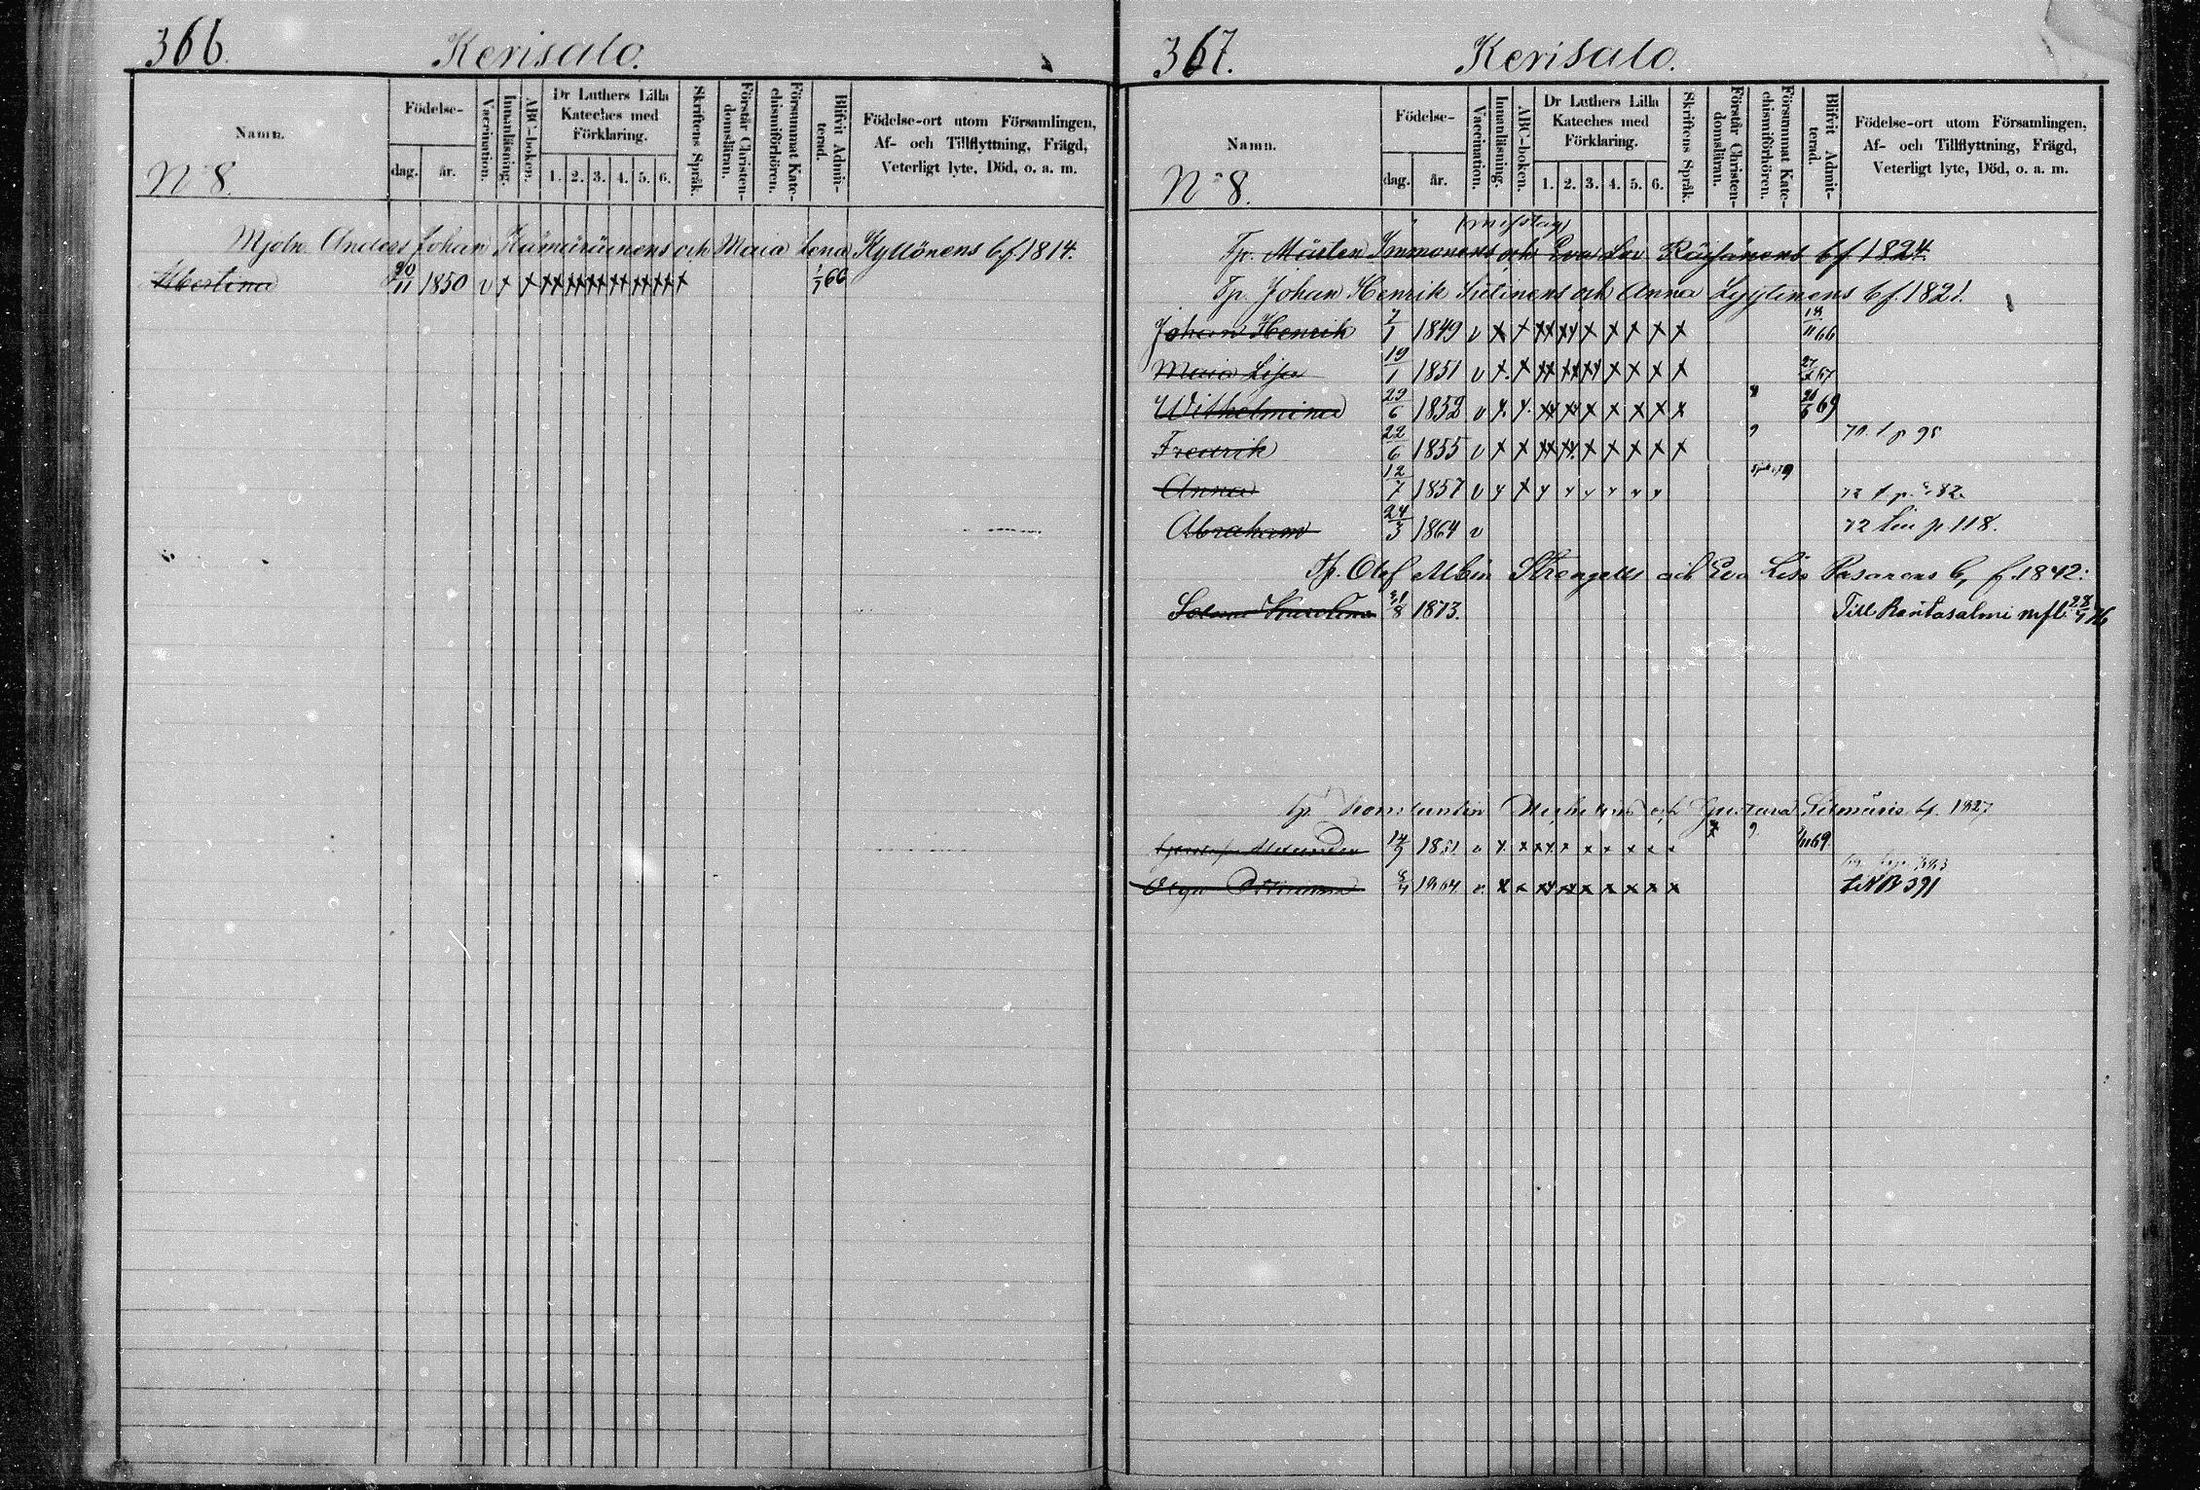 366.
Kerisalo.
Namn.
N° 8.
Födelse-
dag.
år.
Vaccination.
Innanläsning.
ABC-boken.
Dr Luthers Lilla Kateches med Förklaring.
1. 2. 3. 4. 5. 6.
Skriftens Språk.
Förstår Christendomsläran.
Försummat Katechismiförhören.
Blifvit Admitterad.
Födelse-ort utom Församlingen, Af- och Tillflyttning, Frägd, Veterligt lyte, Död, o. a. m.
Mjöln. Anders Johan Hämäräinens och Maia Lena Kyllönens b. f. 1814.
Albertina 20/11 1850 v x x xx xx xx xx xx xx x 1/7 66
367.
Kerisalo.
Namn.
N° 8.
Födelse-
dag.
år.
Vaccination.
Innanläsning.
ABC-boken.
Dr Luthers Lilla Kateches med Förklaring.
1. 2. 3. 4. 5. 6.
Skriftens Språk.
Förstår Christendomsläran.
Försummat Katechismiförhören.
Blifvit Admitterad.
Födelse-ort utom Församlingen, Af- och Tillflyttning, Frägd, Veterligt lyte, Död, o. a. m.
(misstag)
Tp. Mårten Immonens och Eva Lov. Räisänens b f 1824.
Tp. Johan Henrik Sutinens och Anna Lyytinens b f. 1821.
Johan Henrik 7/1 1849 v x x xx xx x x x x x 18/11 66
Maia Lisa 19/1 1851 v x x xx xx xx x x x x 27/ 67
Wilhelmina 29/6 1852 v x x xx xx x x x x x 69
Fredrik 22/6 1855 v x x xx xx x x x x x 70. f p 98
Anna 12/7 1857 v x x x x x x x x 72 f p. 82.
Abraham 24/3 1864 v 72 p. 118.
Tp. Olof Albin Strengells och Eva Lisa Pasanens b. f. 1842.
Karolina /8 1873. Till Rantasalmi mfl. 28/ 76
tp Konstantin och Gustava b f. 1827
Alexander 14/ 1851 v x x xx x x x x x x 69
Olga 1864 v x x xx xx x x x x x 391